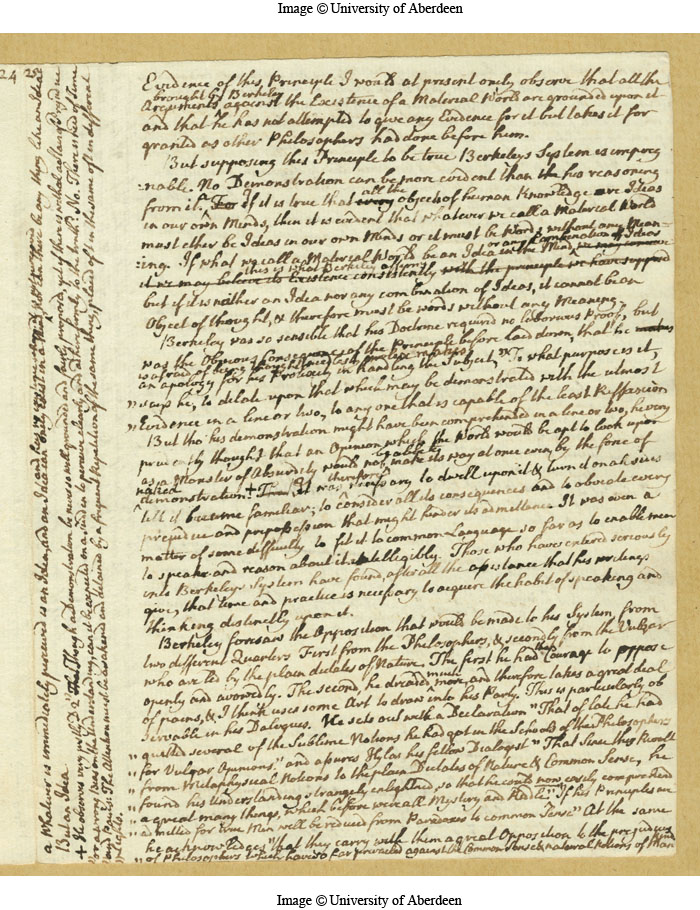 Image © University of Aberdeen
24
Evidence of this Principle I would at present only observe that all the
brought by Berkeley
Arguments against the Existence of a Material World are grounded upon it
and that he has not attempted to give any Evidence for it but takes it for
granted as other Philosophers had done before him.
But supposing this Principle to be true Berkeleys System is impreg
:nable. No Demonstration can be more evident than his reasoning
from it. For If it is true that every all the objects of human Knowledge are Ideas
in our own Minds, then it is evident that whatever we call a Material World
must either be Ideas in our own Minds or it must be Words without any Mean-
:ing. If what we call a Material World be an Idea in the Mind or any Combination of Ideas we may conceive
this is what Berkeley affirms
it we may believe its Existence consistently with the principle we have supposed
but if it is neither an Idea nor any combination of Ideas, it cannot be an
Object of thought, & therefore must be words without any Meaning.
Berkeley was so sensible that his Doctrine required no laborious Proof, but
was the Obvious Consequence of the Principle before laid down, that he makes
is afraid of being thought needlesly prolix & makes
an apology for his Prolixity in handling the Subject, "To what purpose is it,
" says he, to dilate upon that which may be demonstrated with the utmost
" Evidence in a line or two, to any one that is capable of the least Reflexion
But tho' his demonstration might have been comprehended in a line or two, he very
prudently thought that an Opinion which the World would be apt to look upon
as a Monster of Absurdity would not be able to make its way at once even by the force of
naked
demonstration. + It was therefore necessary to dwell upon it & turn it on all sides
till it became familiar; to consider all its consequences and to obviate every
prejudice and prepossession that might hinder its admittance. It was even a
matter of some difficulty to fit it to common Language so far as to enable men
to speak and reason about it intelligibly. Those who have entered seriously
into Berkeleys System have found, after all the assistance that his writings
give, that time and practice is necessary to acquire the habit of speaking and
thinking distinctly upon it.
Berkeley foresaw the Opposition that would be made to his System from
two different Quarters First from the Philosophers, & secondly from the Vulgar
who are led by the plain dictates of Nature. The first he had the Courage to oppose
openly and avowedly. The second, he dreaded much more, and therefore takes a great deal
of pains, & I think uses some Art to draw into his Party. This is particularly ob
servable in his Dialogues. He sets out with a Declaration "That of late he had
" quitted several of the Sublime Notions he had got in the Schools of the Philosophers
" for Vulgar Opinions" and assures Hylas his fellow Dialogist "That Since this Revolt
" from Metaphysical Notions to the plain Dictates of Nature & Common Sense, he
" found his Understanding strangely enlightned, so that he could now easily comprehend
" a great many things, which before were all Mystery and Riddle" If his Principles are
" admitted for true Men will be reduced from Paradoxes to common Sense" At the same
" he acknowledges "that they carry with them a great Opposition to the prejudices
" of Philosophers which have so far prevailed against the Common Sense & natural Notions of Mankind
a Whatever is immediately perceived is an Idea, and an Idea can only exist in a Mind
But an Idea
+ He observes very justly
The Attention must be awakened and detained by a frequent Repetition of the same thing, placed oft in the same oft in different
Image © University of Aberdeen